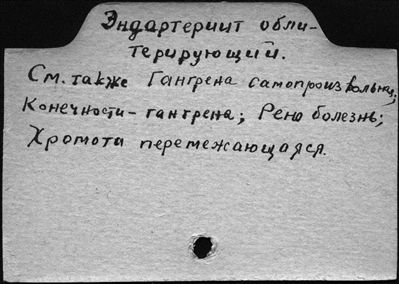 Эндартериит обли-
терирующий.
См. также Гангрена самопроизвольная;
Конечности - гангрена; Рено болезнь;
Хромота перемежающаяся.